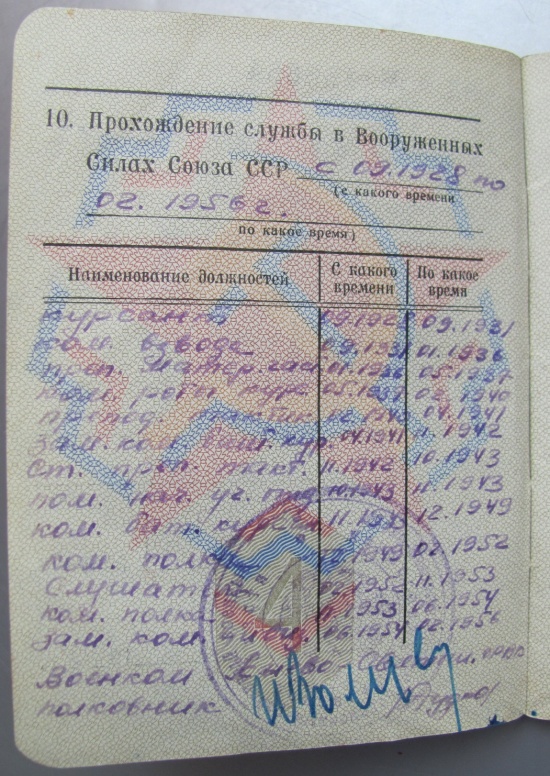 10. Прохождение службы в Вооруженных
Силах Союза ССР с 09.1928 по
(с какого времени
02. 1956 г.
по какое время)
Наименование должностей С какого времени По какое время
курсант 09.1928 09.1931
ком. взвода 09.1931 01.1936
преп. 01.1936 05.1937
роты кур. 05.1937 02.1940
препод. тактики 04.1941
зам. ком. кур. 04.1941 11.1942
ст. преп. такт. 11.1942 10.1943
пом. нач. уч. 10.1943 11.1943
ком. бат. 11.1943 12.1949
ком. полка 1949 02.1952
Слушатель 1952 11.1953
ком. полка 1953 06.1954
зам. ком. 06.1954 02.1956
Военком
полковник